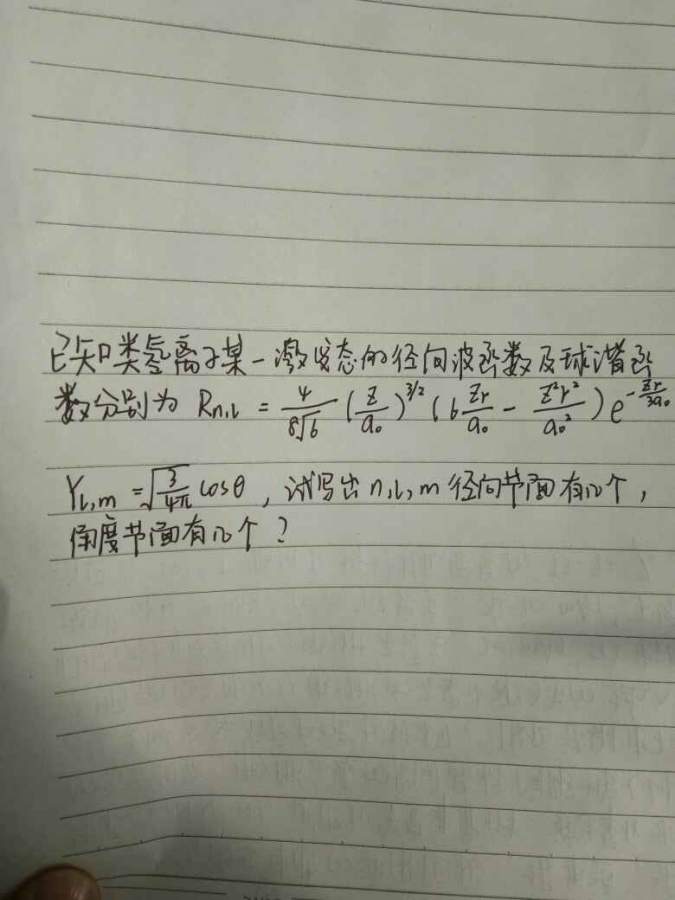 已知类氢离子某一激发态的径向波函数及球谐函
数分别为 Rn,l = 4/(8√6) (Z/a₀)^(3/2) (6 Zr/a₀ - Z²r²/a₀²) e^(-Zr/3a₀)
Yl,m = √(3/4π) cosθ, 试写出 n, l, m 径向节面有几个,
角度节面有几个?